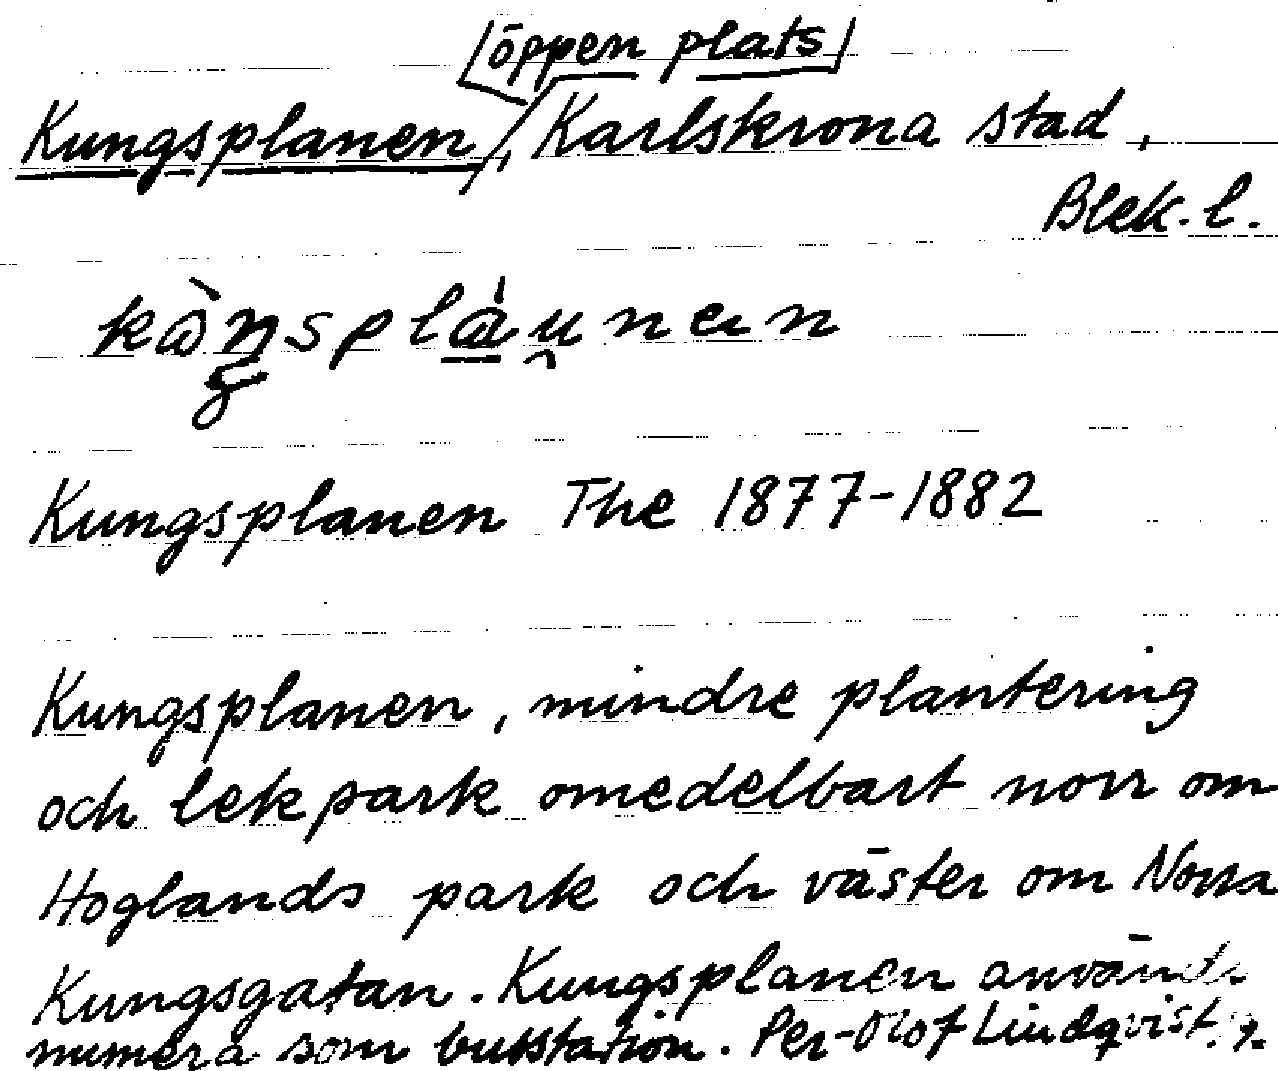 öppen plats
Kungsplanen, Karlskrona stad,
Blek. l.
Kungsplanen The 1877-1882
Kungsplanen, mindre plantering
och lekpark omedelbart norr om
Hoglands park och väster om Norra
Kungsgatan. Kungsplanen används
numera som busstation. Per-Olof Lindqvist.